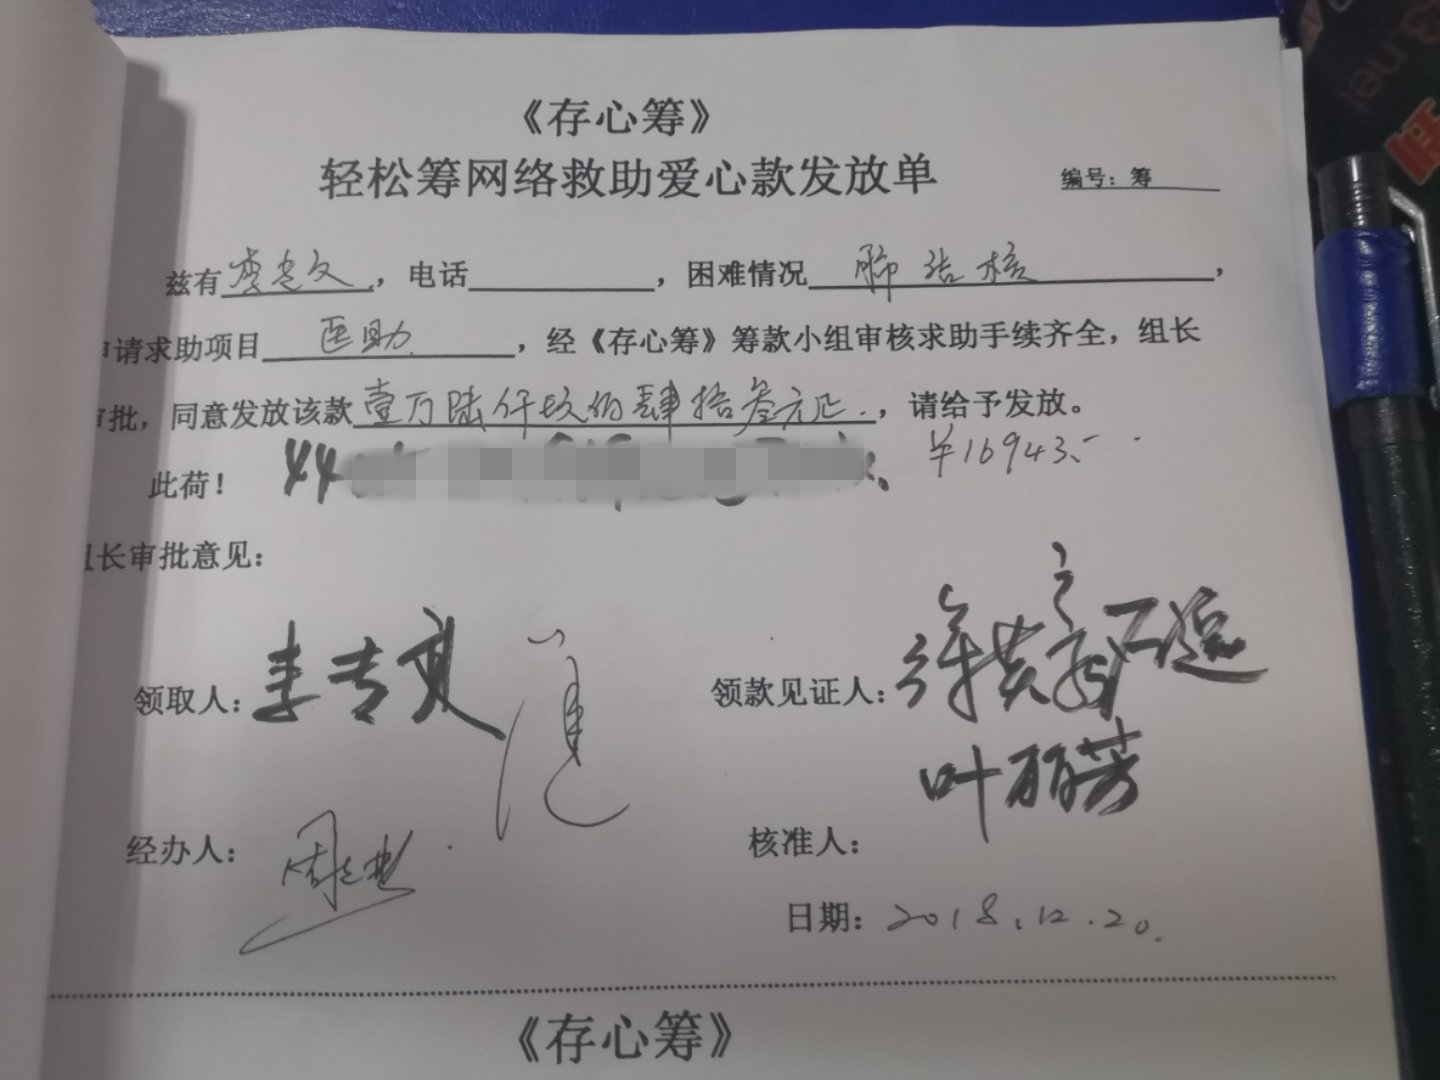 《存心筹》
轻松筹网络救助爱心款发放单
编号：筹
兹有李老文，电话，困难情况肺结核，
申请求助项目医助，经《存心筹》筹款小组审核求助手续齐全，组长
审批，同意发放该款壹万陆仟玖佰肆拾叁元正，请给予发放。
¥16943.-
此荷！ 44
组长审批意见：
领取人：李老文
领款见证人：
叶丽芳
经办人：
核准人：
日期：2018.12.20.
《存心筹》